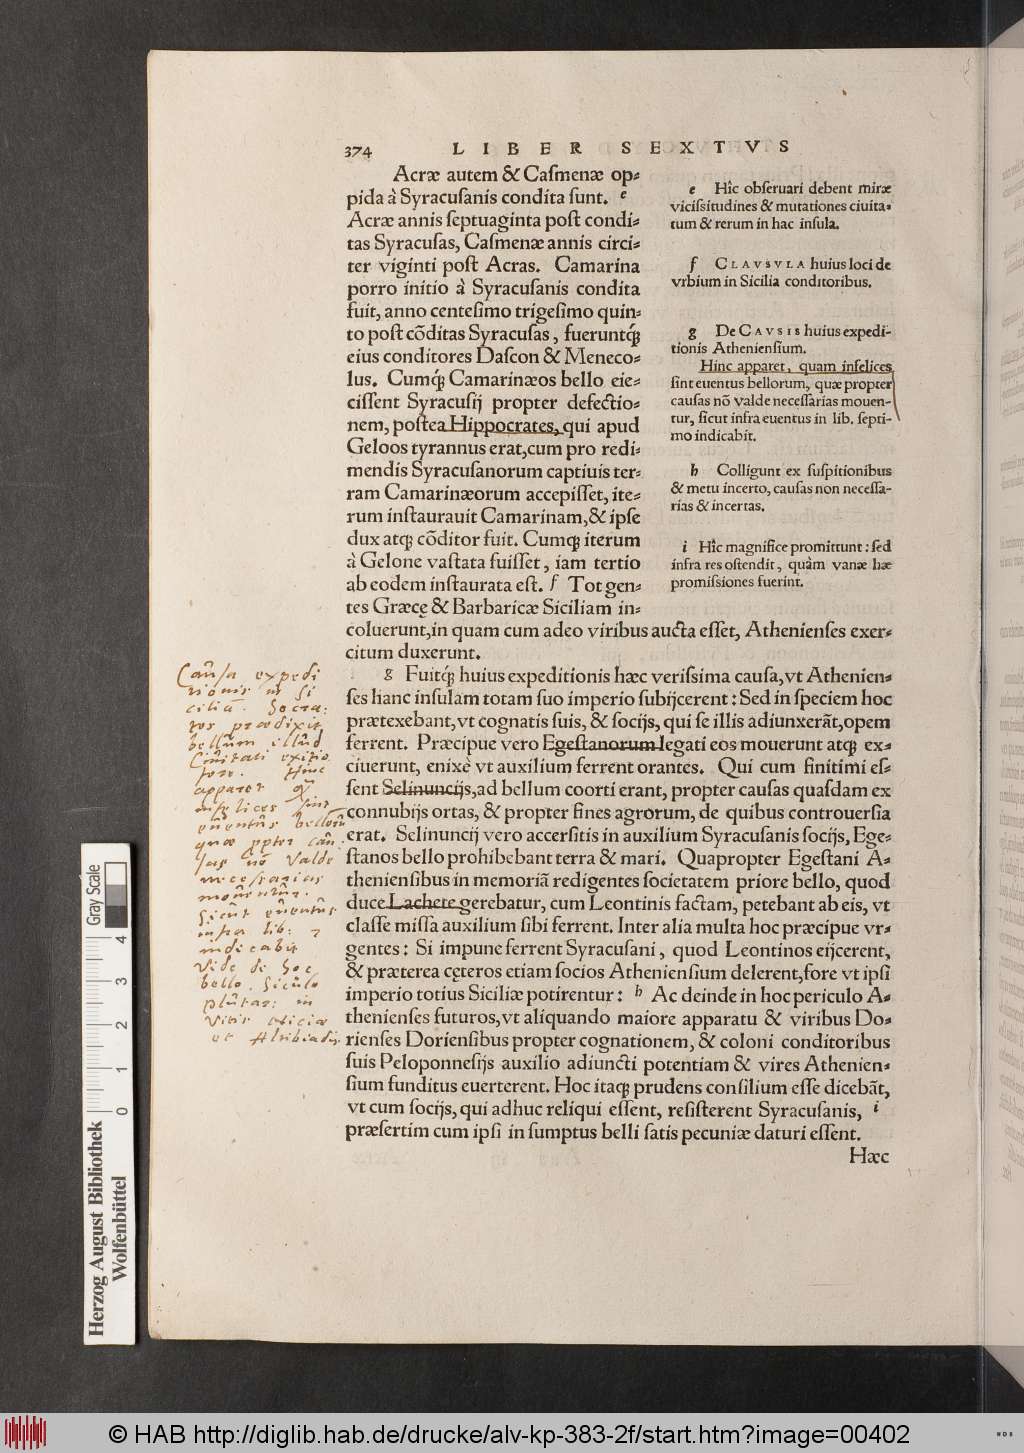 374 LIBER SEXTVS
Acræ autem & Caſmenæ op⸗
pida à Syracuſanis condita ſunt. e
Acræ annis ſeptuaginta poſt condi⸗
tas Syracuſas, Caſmenæ annis circi⸗
ter viginti poſt Acras. Camarina
porro initio à Syracuſanis condita
fuit, anno centeſimo trigeſimo quin⸗
to poſt cõditas Syracuſas, fueruntq́;
eius conditores Daſcon & Meneco⸗
lus. Cumq́; Camarinæos bello eie⸗
ciſſent Syracuſij propter defectio⸗
nem, poſtea Hippocrates, qui apud
Geloos tyrannus erat, cum pro redi⸗
mendis Syracuſanorum captiuis ter⸗
ram Camarinæorum accepiſſet, ite⸗
rum inſtaurauit Camarinam, & ipſe
dux atq; cõditor fuit. Cumq; iterum
à Gelone vaſtata fuiſſet, iam tertio
ab eodem inſtaurata eſt. f Tot gen⸗
tes Græcę & Barbaricæ Siciliam in⸗
coluerunt, in quam cum adeo viribus aucta eſſet, Athenienſes exer⸗
citum duxerunt.
e Hîc obſeruari debent miræ
viciſsitudines & mutationes ciuita⸗
tum & rerum in hac inſula.
f CLAVSVLA huius loci de
vrbium in Sicilia conditoribus.
g De CAVSIS huius expedi-
tionis Athenienſium.
Hinc apparet, quam infelices
ſint euentus bellorum, quæ propter
cauſas nõ valde neceſſarias mouen-
tur, ſicut infra euentus in lib. ſepti-
mo indicabit.
h Colligunt ex ſuſpitionibus
& metu incerto, cauſas non neceſſa-
rias & incertas.
i Hîc magnifice promittunt: ſed
infra res oſtendit, quàm vanæ hæ
promiſsiones fuerint.
g Fuitq́; huius expeditionis hæc veriſsima cauſa, vt Athenien⸗
ſes hanc inſulam totam ſuo imperio ſubijcerent: Sed in ſpeciem hoc
prætexebant, vt cognatis ſuis, & ſocijs, qui ſe illis adiunxerãt, opem
ferrent. Præcipue vero Egeſtanorum legati eos mouerunt atq; ex⸗
ciuerunt, enixè vt auxilium ferrent orantes. Qui cum finitimi eſ⸗
ſent Selinuncijs, ad bellum coorti erant, propter cauſas quaſdam ex
connubijs ortas, & propter fines agrorum, de quibus controuerſia
erat. Selinuncij vero accerſitis in auxilium Syracuſanis ſocijs, Ege⸗
ſtanos bello prohibebant terra & mari. Quapropter Egeſtani A⸗
thenienſibus in memoriã redigentes ſocietatem priore bello, quod
duce Lachete gerebatur, cum Leontinis factam, petebant ab eis, vt
claſſe miſſa auxilium ſibi ferrent. Inter alia multa hoc præcipue vr⸗
gentes: Si impune ferrent Syracuſani, quod Leontinos eijcerent,
& præterea cęteros etiam ſocios Athenienſium delerent, fore vt ipſi
imperio totius Siciliæ potirentur: h Ac deinde in hoc periculo A⸗
thenienſes futuros, vt aliquando maiore apparatu & viribus Do⸗
rienſes Dorienſibus propter cognationem, & coloni conditoribus
ſuis Peloponneſijs auxilio adiuncti potentiam & vires Athenien⸗
ſium funditus euerterent. Hoc itaq; prudens conſilium eſſe dicebãt,
vt cum ſocijs, qui adhuc reliqui eſſent, reſiſterent Syracuſanis, i
præſertim cum ipſi in ſumptus belli ſatis pecuniæ daturi eſſent.
Hæc
Cauſa expedi
tionis in Si
ciliã. Socra:
tes prædixit
bellum illud
Ciuitati exitio
fore. Hinc
apparet
infelices ſint
euentus bellorũ
quæ ppter cau
ſas nõ valde
neceſſarias
mouentur.
Sicut euentus
infra lib: 7
indicabit
Vide de hoc
bello Siculo
Plutar: in
Vitis Niciæ
et Alcibiadis.
Herzog August Bibliothek
Wolfenbüttel
0 1 2 3 4
Gray Scale
© HAB http://diglib.hab.de/drucke/alv-kp-383-2f/start.htm?image=00402